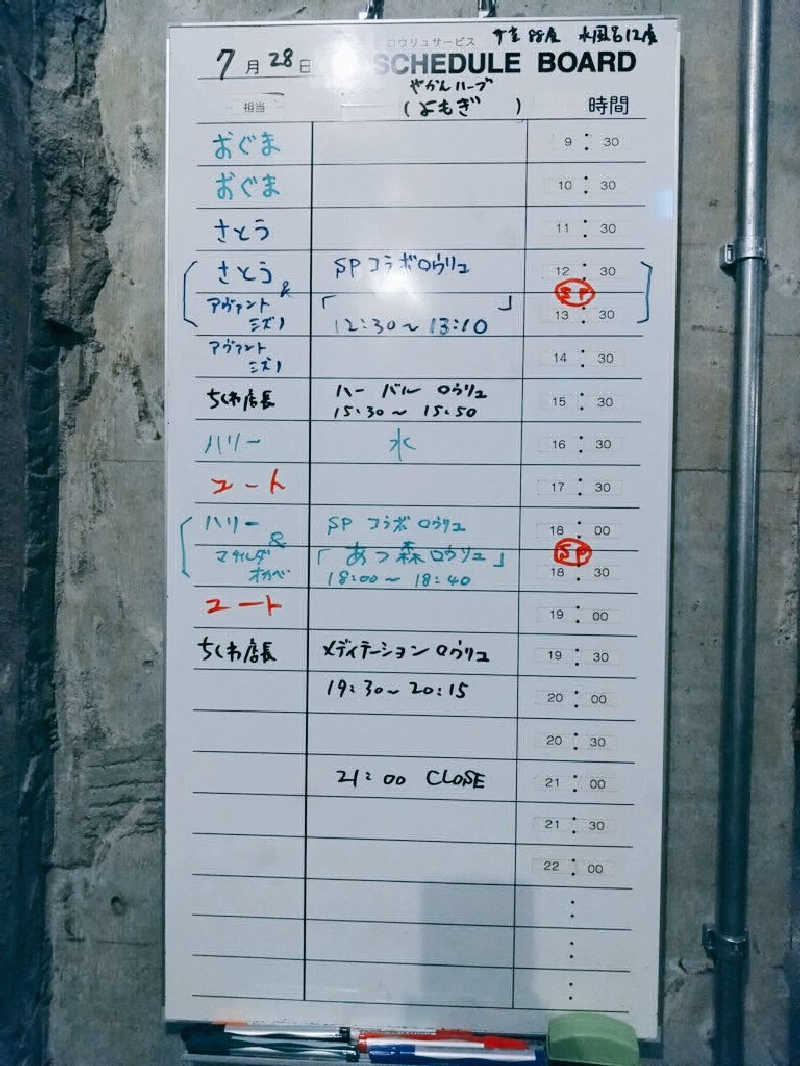 ロウリュサービス サ室 88度 水風呂 12度
7月28日 SCHEDULE BOARD
やかんハーブ
担当 (よもぎ) 時間
おぐま 9:30
おぐま 10:30
さとう 11:30
さとう & SPコラボロウリュ 12:30
SP
アヴァントミズノ 「 」 12:30~13:10 13:30
アヴァントミズノ 14:30
ちくわ店長 ハーバルロウリュ 15:30~15:50 15:30
ハリー 水 16:30
ユート 17:30
ハリー & SPコラボロウリュ 18:00
SP
マチルダオカベ 「あつ森ロウリュ」 18:00~18:40 18:30
ユート 19:00
ちくわ店長 メディテーションロウリュ 19:30
19:30~20:15 20:00
20:30
21:00 CLOSE 21:00
21:30
22:00